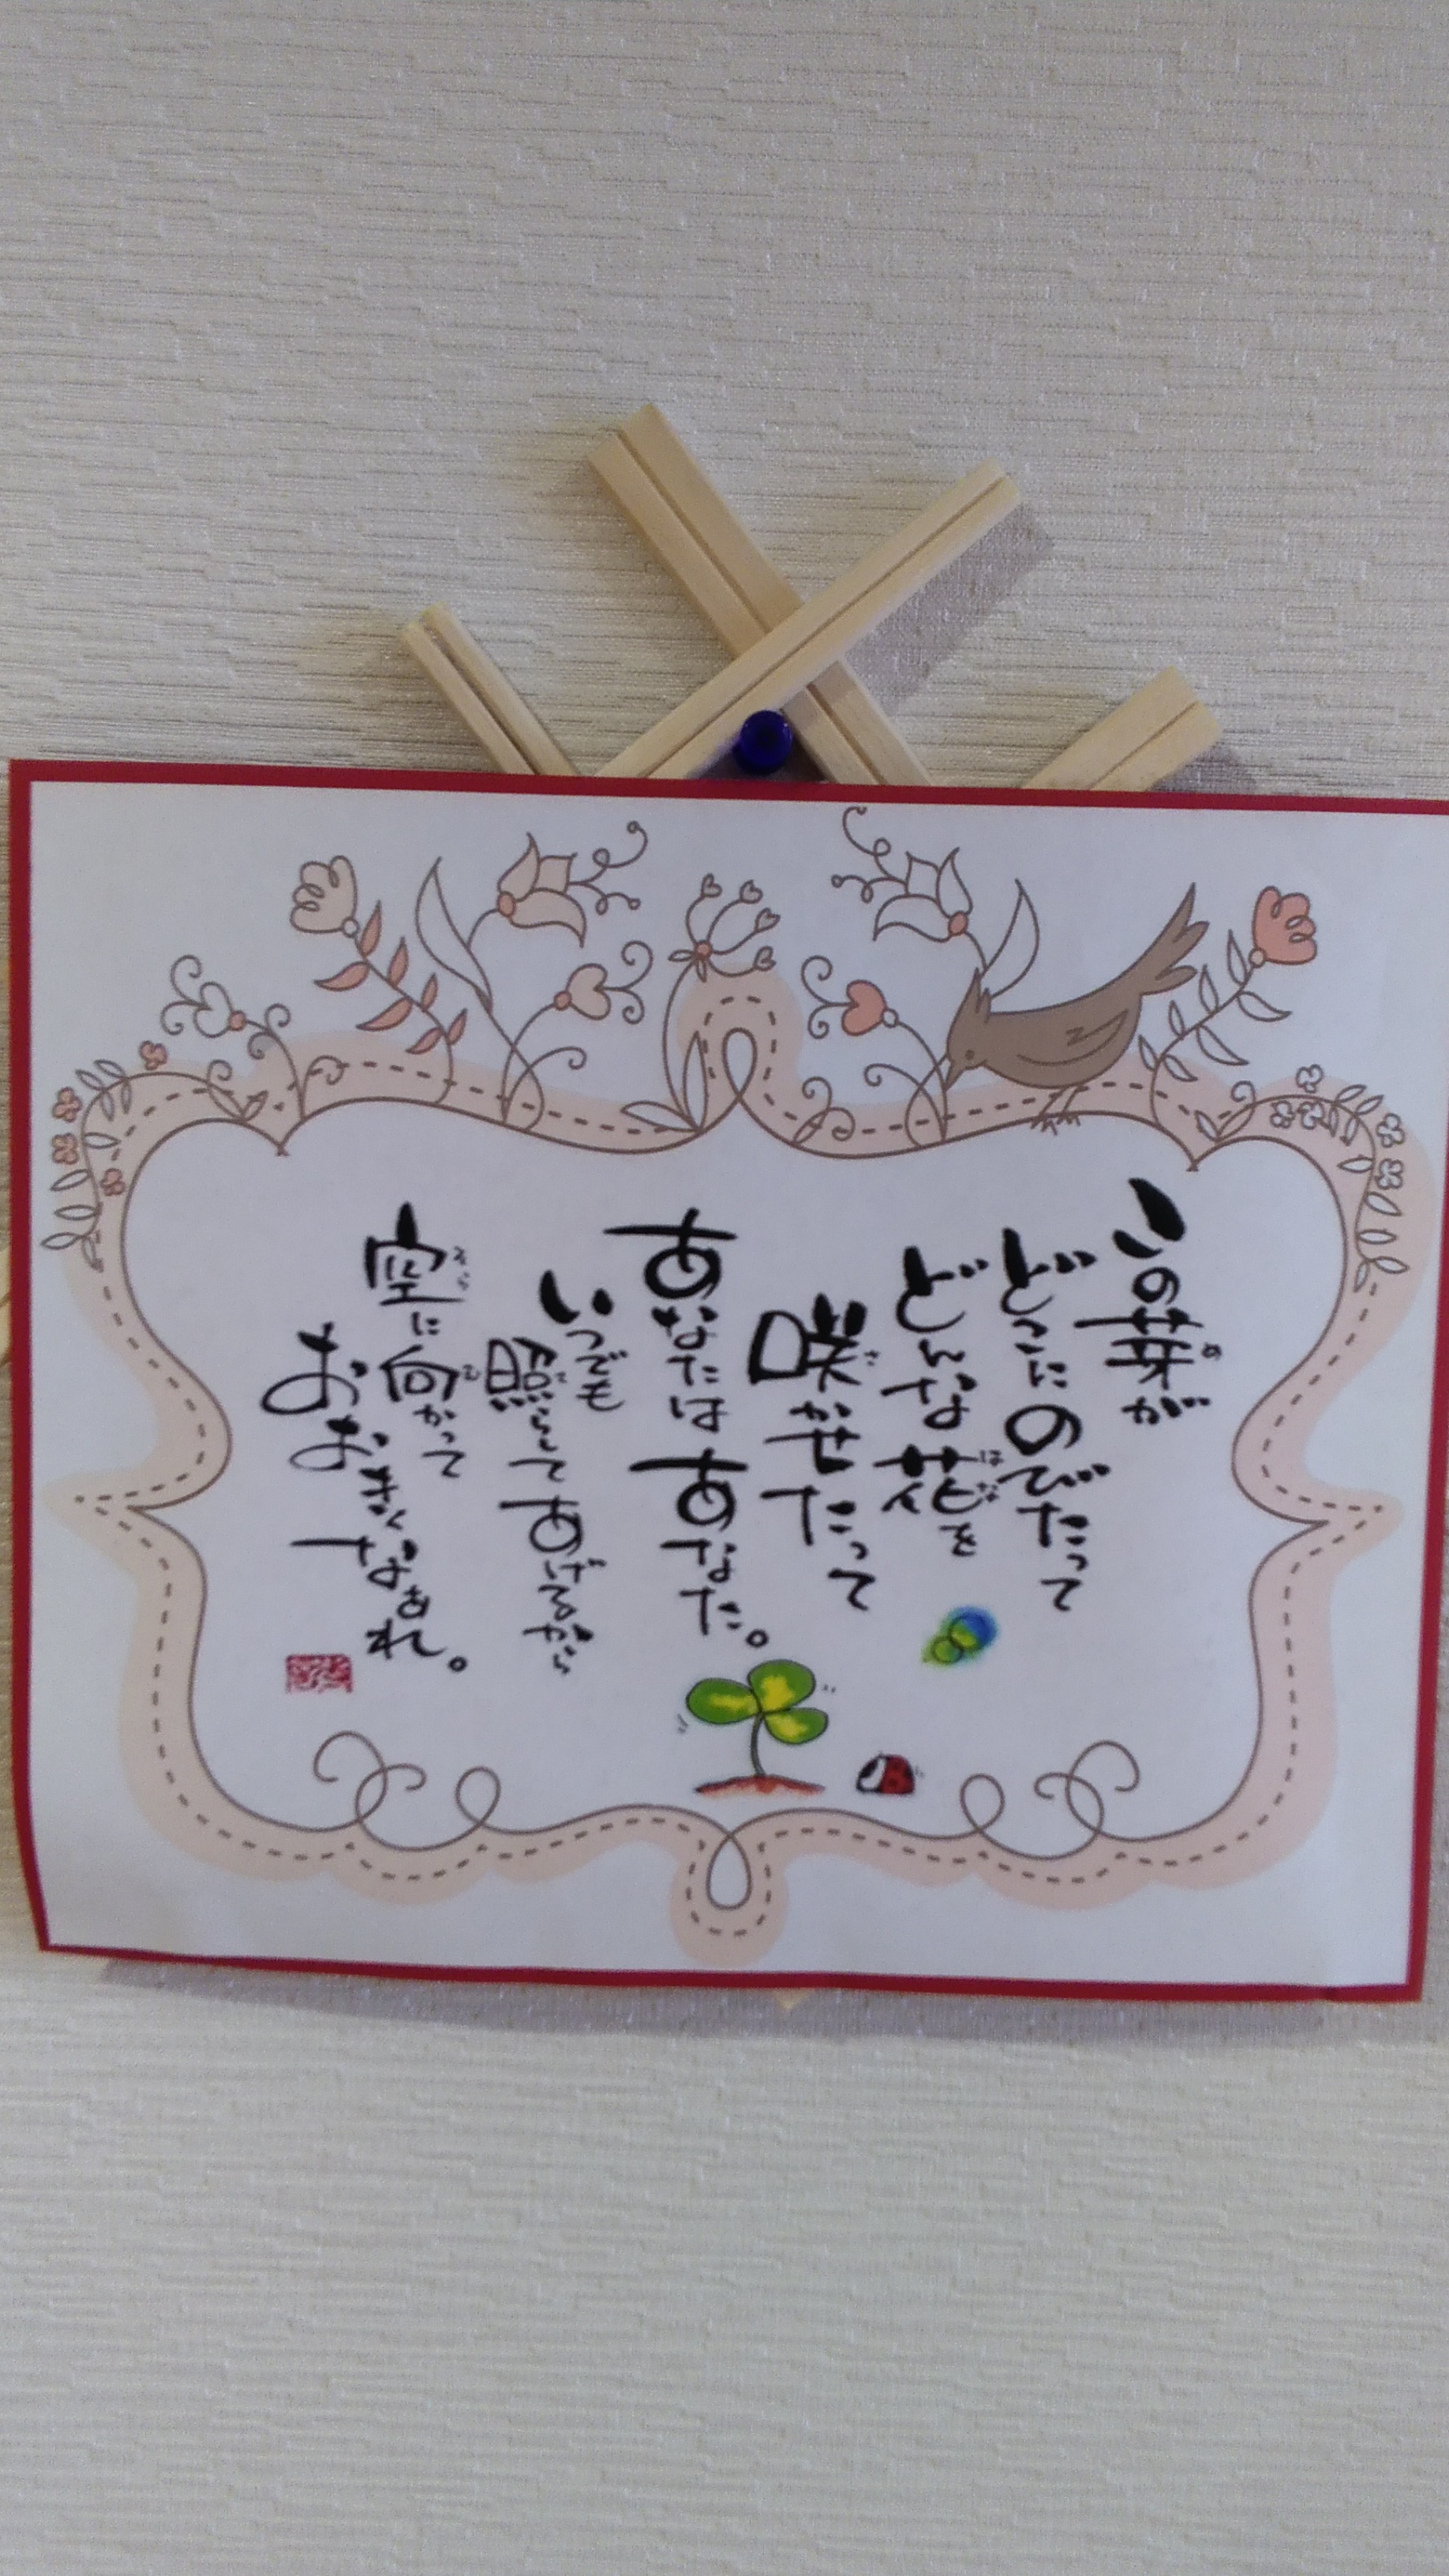 この芽が
どこにのびたって
どんな花を
咲かせたって
あなたはあなた。
いつでも
照らしてあげるから
空に向かって
おおきくなぁれ。